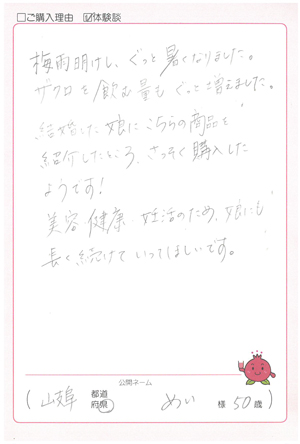 □ご購入理由 ☑体験談
梅雨明けし、ぐっと暑くなりました。
ザクロを飲む量もぐっと増えました。
結婚した娘にこちらの商品を
紹介したところ、さっそく購入した
ようです!
美容 健康 妊活のため、娘にも
長く続けていってほしいです。
公開ネーム
(岐阜 都道府県 めい 様 50歳)